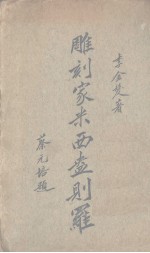 李金髮著
雕刻家米西盎則羅
蔡元培題